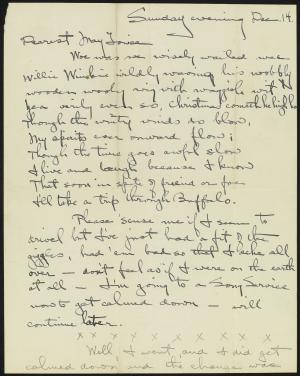 Sunday evening Dec. 14.
Dearest May Louise
Woe was me, wisely wailed wee
Willie Winkie wildly waving his wobbly
wooden woody wig with waggish wit
even so, Christmas cometh
Though the wintry winds do blow,
My spirits ever onward flow;
Though the time goes awful slow
I live and laugh because I know
That soon in spite of friend or foe
I'll take a trip through Buffalo.
Please 'scuse me if I seem to
drivel but I've just had a fit of the
giggles, had 'em bad so that I ache all
over — don't feel as if I were on the earth
at all — I'm going to a Song Service
now to get calmed down — will
continue later.
x x x x x x x x x
Well I went and I did get
calmed down and the change was